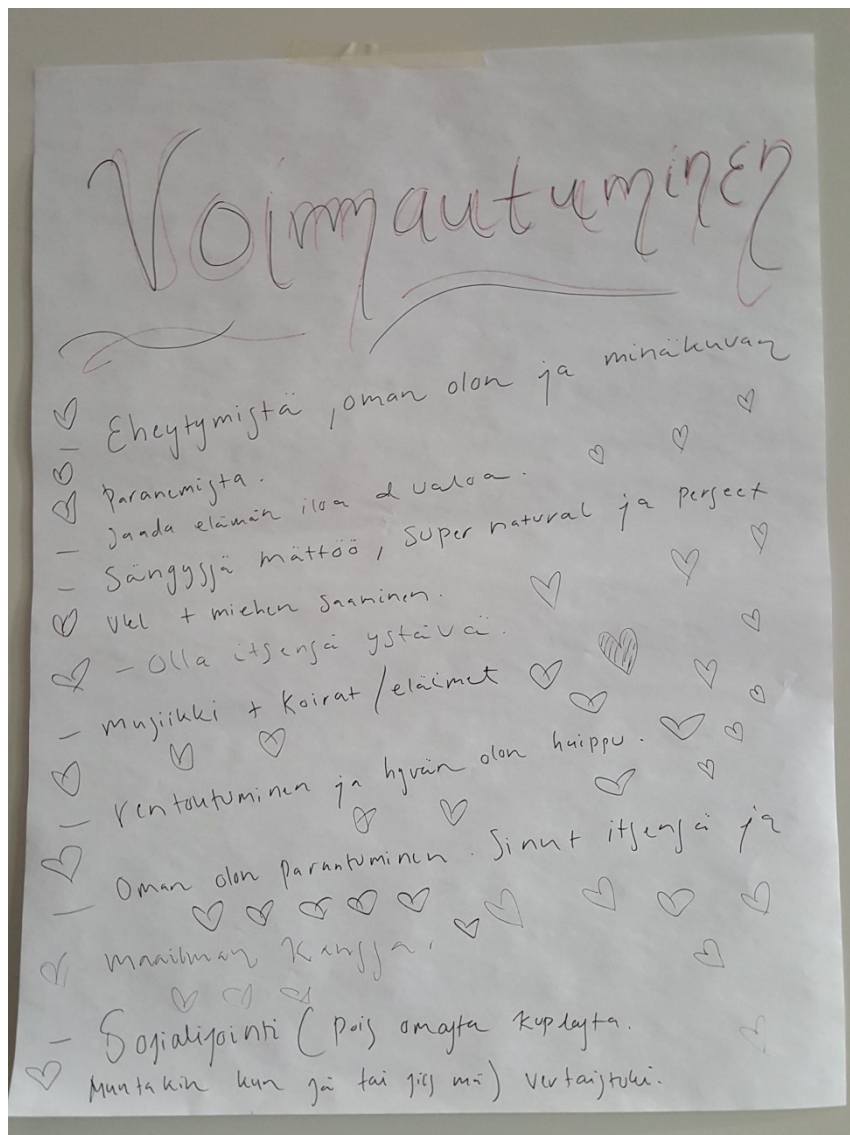 Voimmautuminen
- Eheytymistä, oman olon ja minäkuvan
paranemista.
- Saada elämän iloa & valoa.
- Sängyssä mättöö, super natural ja perfect
Vkl + miehen saaminen.
- Olla itsensä ystävä.
- Musiikki + Koirat/eläimet
- rentoutuminen ja hyvän olon huippu.
- Oman olon parantuminen. Sinut itsensä ja
maailman kanssa.
- Sosialisointi (pois omasta kuplasta.
Muutakin kun sä tai siis mä) vertaistuki.